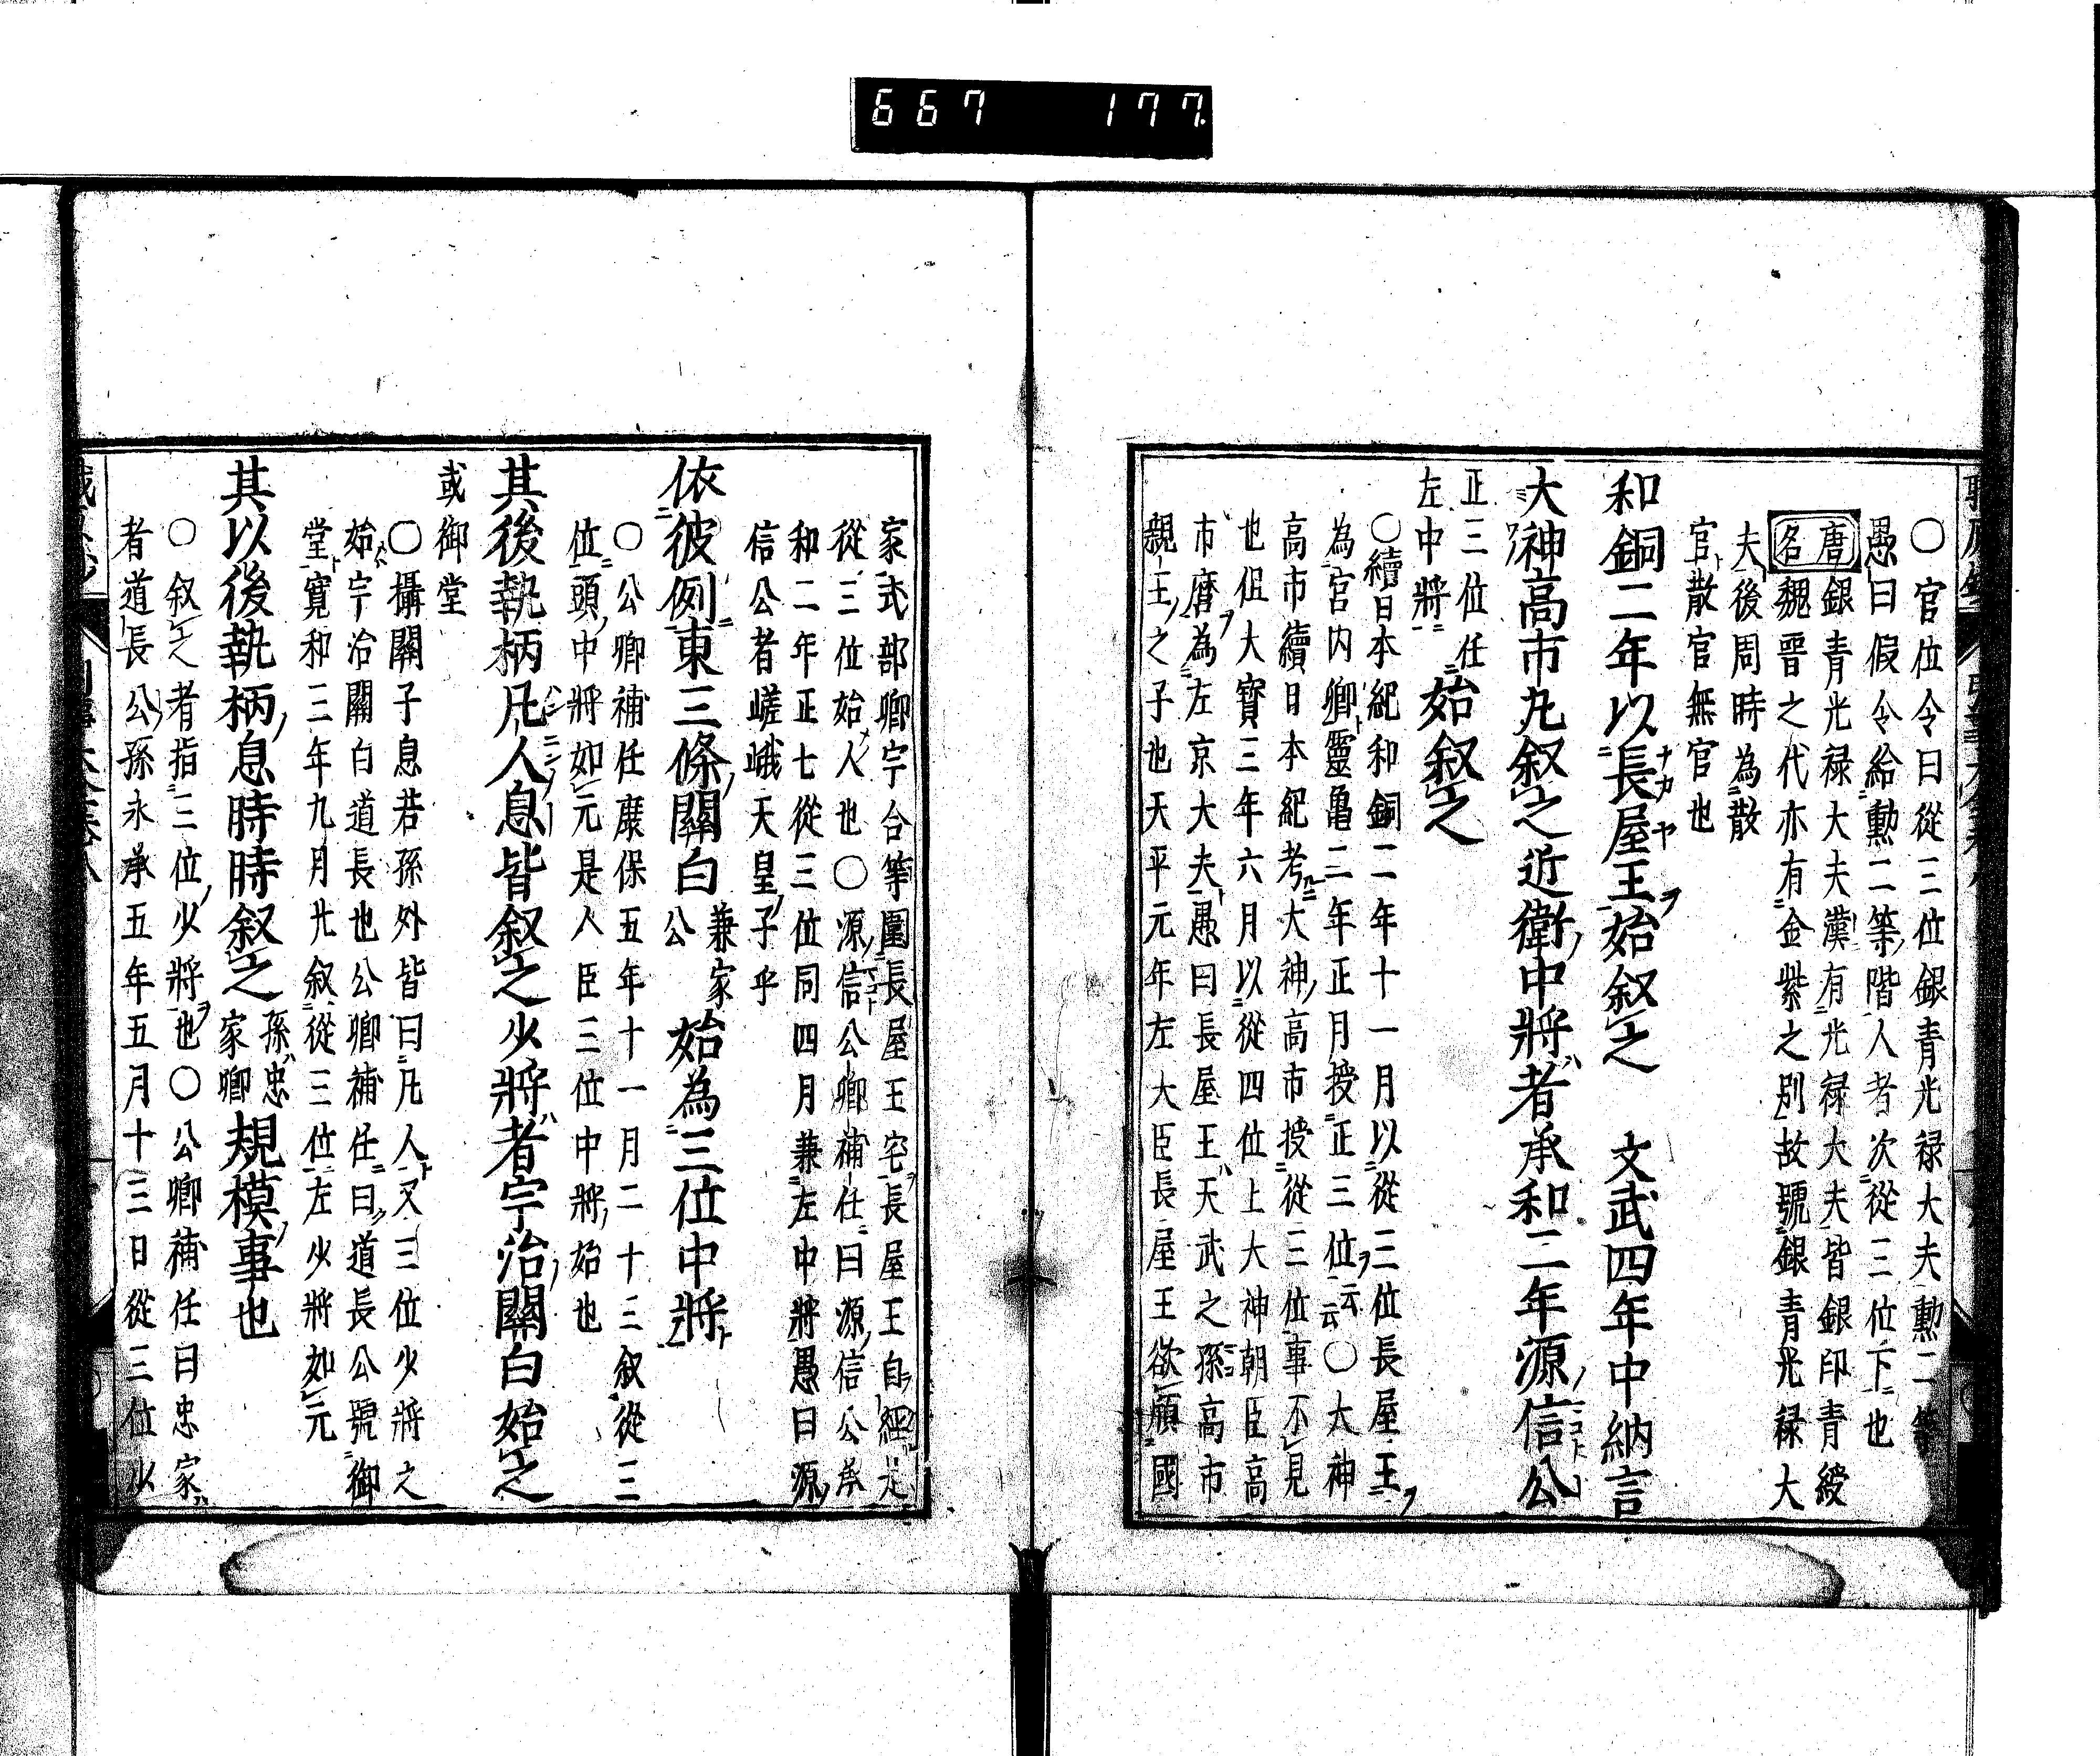 667 177
○官位令曰從三位銀青光禄大夫勲二等
愚曰假令給勲二等階人者次從三位下也
唐名
銀青光禄大夫漢有光禄大夫皆銀印青綬
魏晋之代亦有金紫之別故號銀青光禄大
夫後周時為散
官散官無官也
和銅二年以長屋王始叙之 文武四年中納言
大神高市丸叙之近衛中將者承和二年源信公
正三位任
左中將
始叙之
○續日本紀和銅二年十一月以從三位長屋王
為宮内卿靈亀二年正月授正三位云云○大神
高市續日本紀考大神高市授從三位事不見
也但大寳三年六月以從四位上大神朝臣高
市麿為左京大夫愚曰長屋王天武之孫高市
親王之子也天平元年左大臣長屋王欲傾國
家式部卿宇合等圍長屋王宅長屋王自經
從三位始人也○源信公卿補任曰源信公承
和二年正七從三位同四月兼左中將愚曰源
信公者嵯峨天皇子乎
依彼例東三條關白兼家公始為三位中將
○公卿補任康保五年十一月二十三叙從三
位頭中將如元是人臣三位中將始也
其後執柄凡人息皆叙之少將者宇治關白始之
或御堂
○攝關子息若孫外皆曰凡人又三位少將之
始宇治關白道長也公卿補任曰道長公號御
堂寛和三年九月廿叙從三位左少將如元
其以後執柄息時時叙之孫忠家卿規模事也
○叙之者指三位少將也○公卿補任曰忠家
者道長公孫永承五年五月十三日從三位少